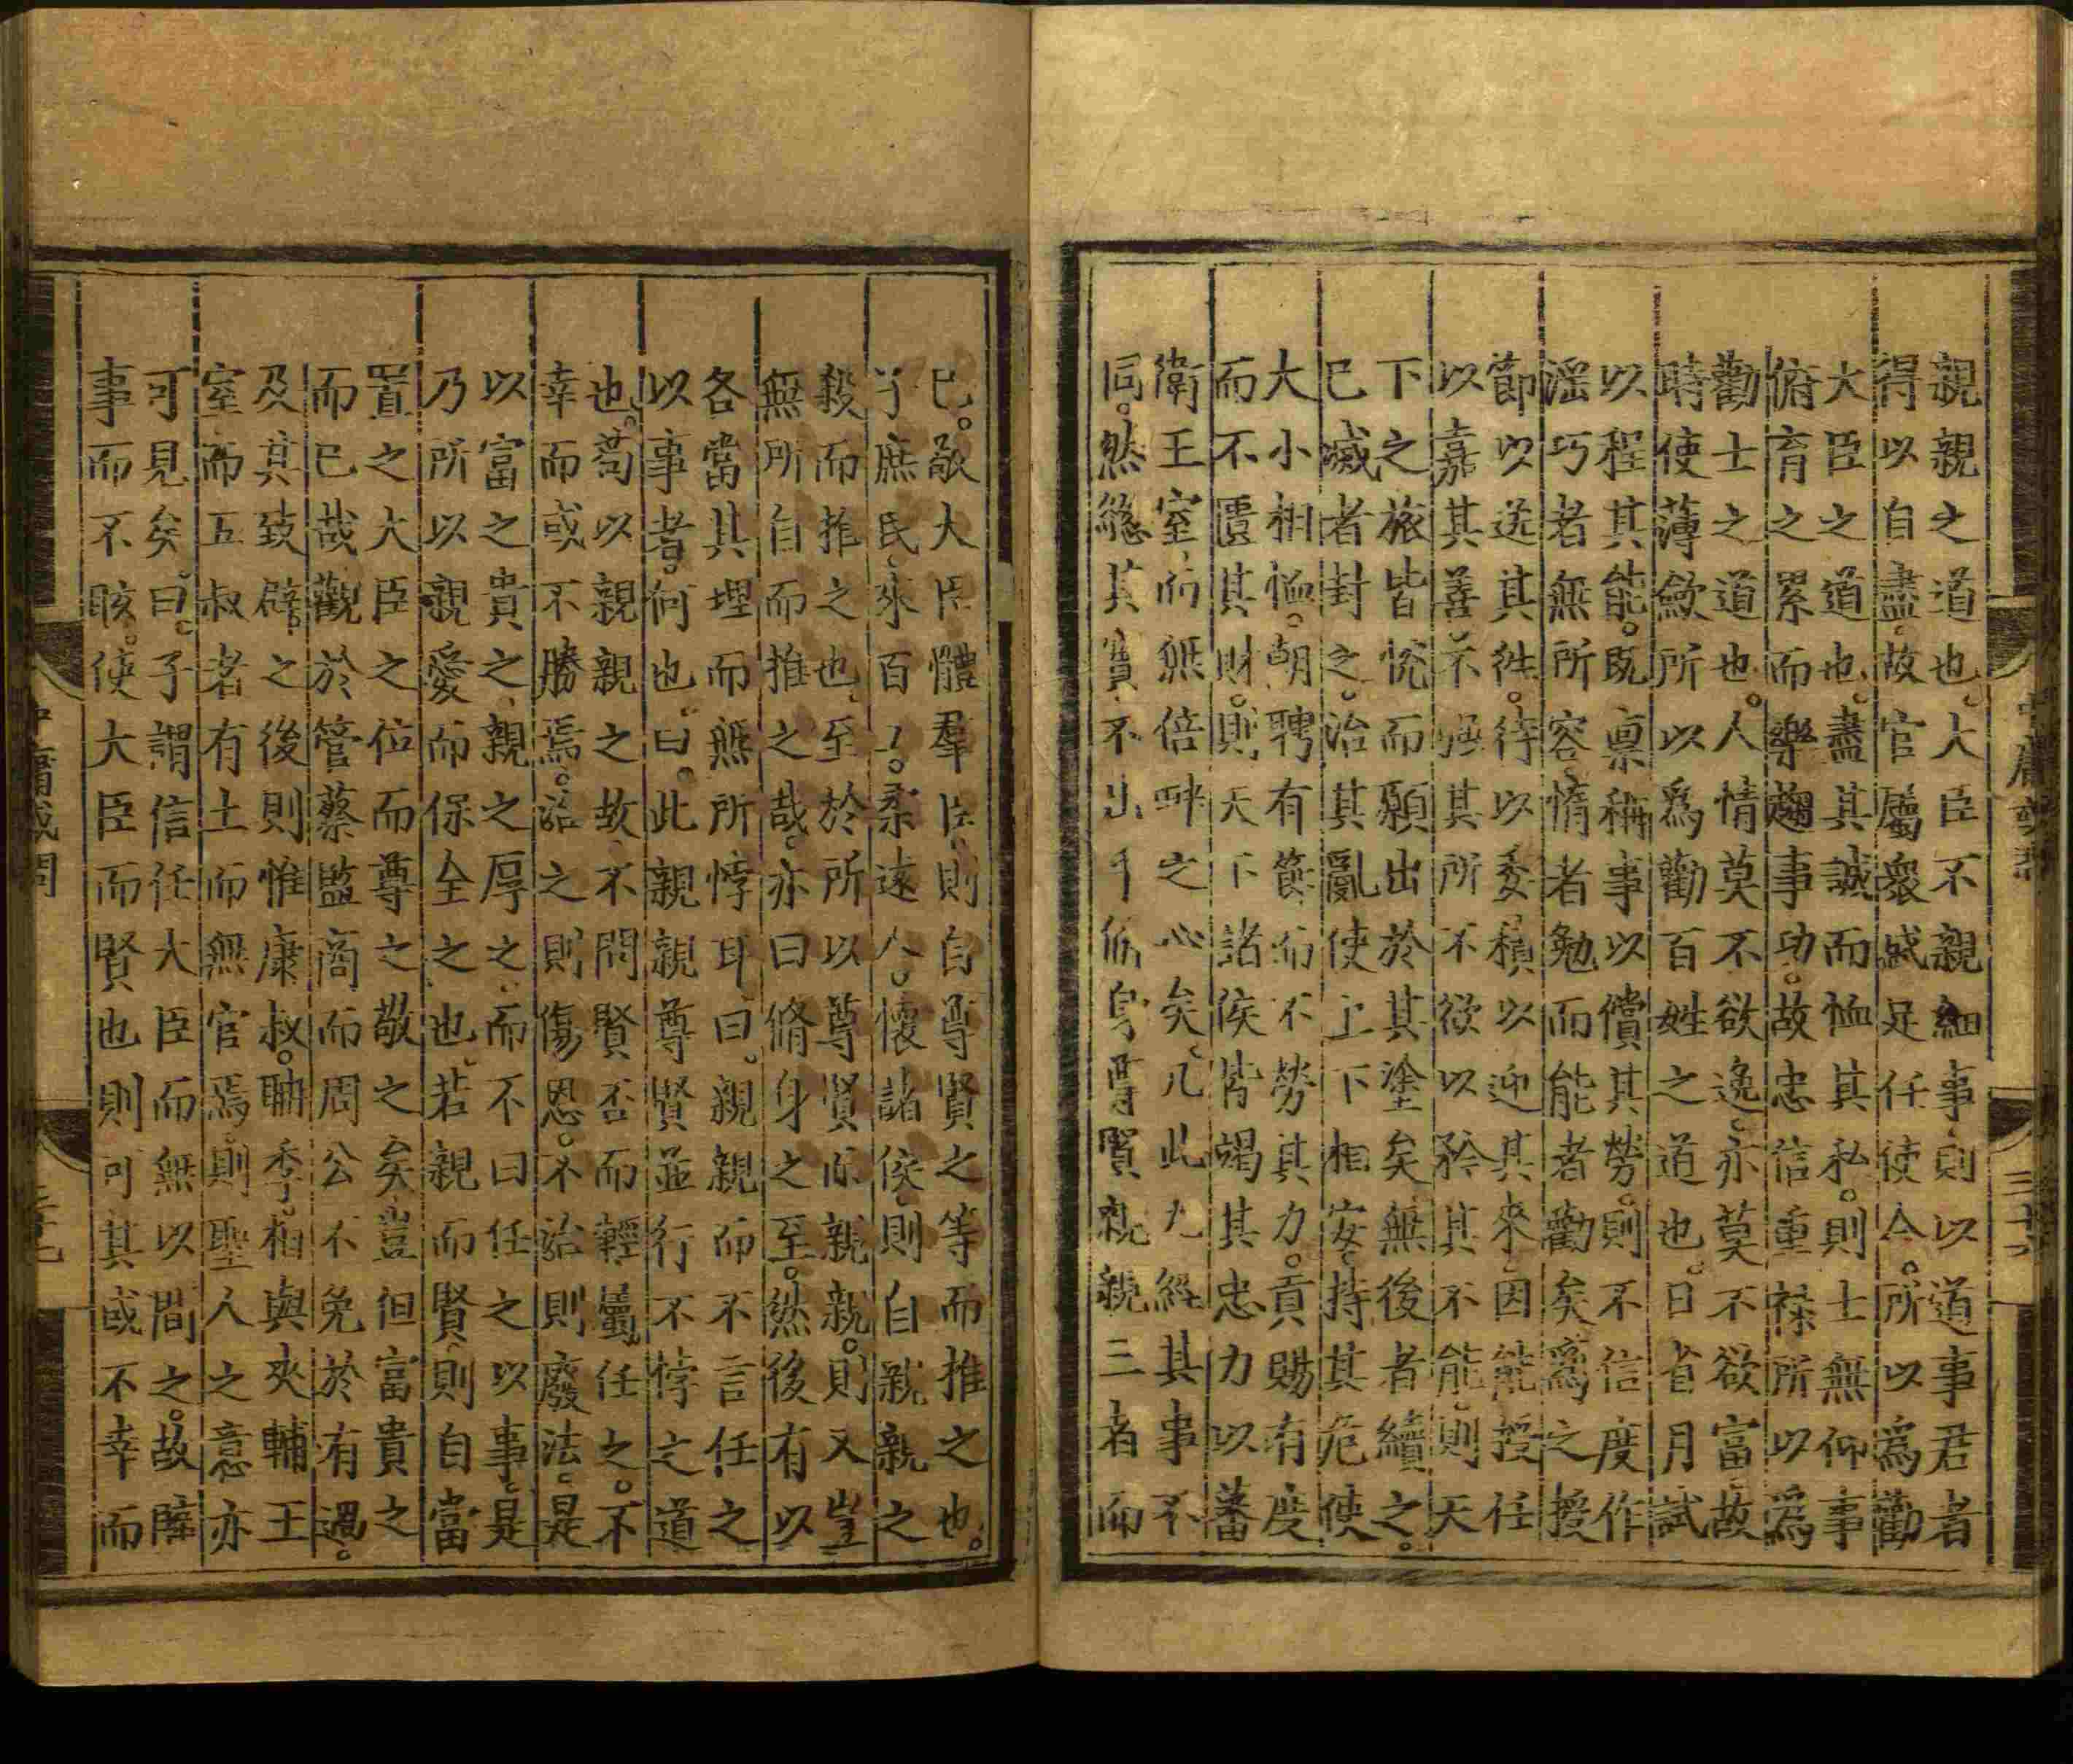 親親之道也大臣不親細事則以道事君者
得以自盡故官屬衆盛足任使令所以為勸
大臣之道也盡其誠而恤其私則士無仰事
俯育之累而樂趨事功故忠信重祿所以為
勸士之道也人情莫不欲逸亦莫不欲富故
時使薄斂所以為勸百姓之道也日省月試
以程其能既稟稱事以償其勞則不信度作
淫巧者無所容惰者勉而能者勸矣為之授
節以送其往待以委積以迎其來因能授任
以嘉其善不強其所不欲以矜其不能則天
下之旅皆悅而願出於其塗矣無後者續之
已滅者封之治其亂使上下相安持其危使
大小相恤朝聘有節而不勞其力貢賜有度
而不匱其財則天下諸侯皆竭其忠力以蕃
衛王室而無倍畔之心矣凡此九經其事不
同然總其實不出乎脩身尊賢親親三者而
已敬大臣體羣臣則自尊賢之等而推之也
子庶民來百工柔遠人懷諸侯則自親親之
殺而推之也至於所以尊賢而親親則又豈
無所自而推之哉亦曰脩身之至然後有以
各當其理而無所悖耳曰親親而不言任之
以事者何也曰此親親尊賢並行不悖之道
也苟以親親之故不問賢否而輕屬任之不
幸而或不勝焉治之則傷恩不治則廢法是
以富之貴之親之厚之而不曰任之以事是
乃所以親愛而保全之也若親而賢則自當
置之大臣之位而尊之敬之矣豈但富貴之
而已哉觀於管蔡監商而周公不免於有過
及其致辟之後則惟康叔聃季相與夾輔王
室而五叔者有土而無官焉則聖人之意亦
可見矣曰子謂信任大臣而無以間之故臨
事而不眩使大臣而賢也則可其或不幸而
中庸或問